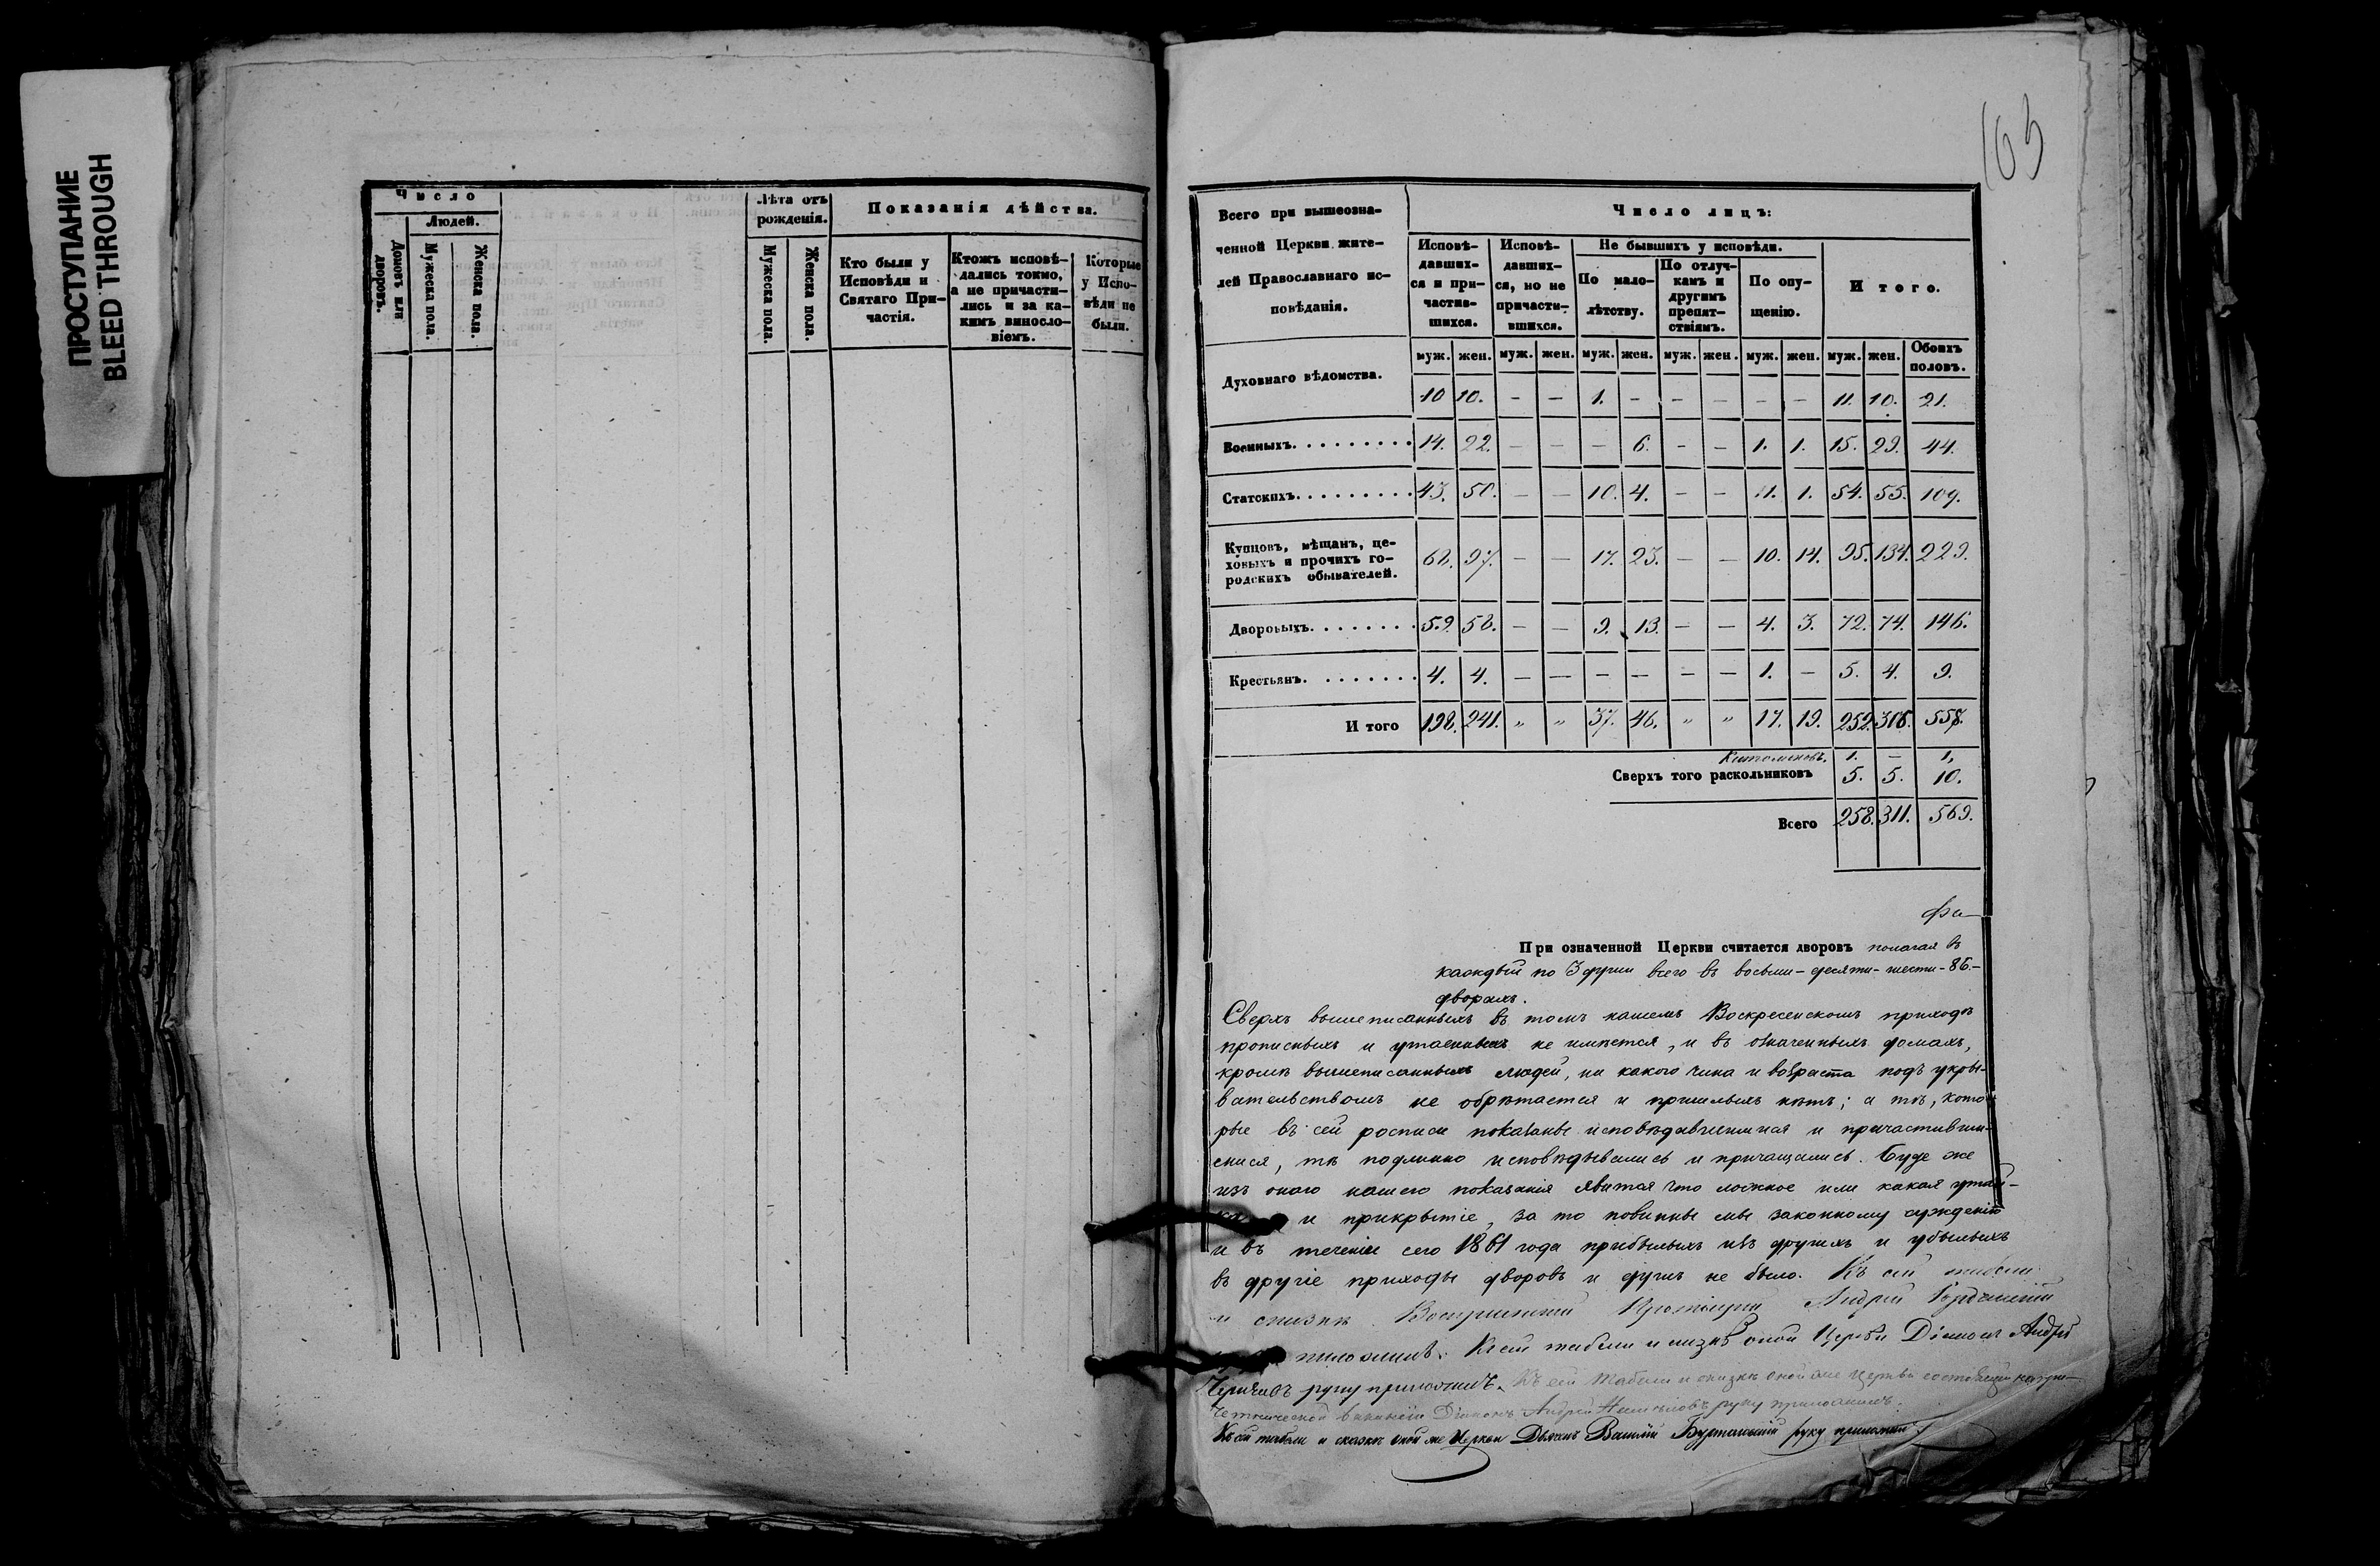 ПРОСТУПАНИЕ
BLEED THROUGH
Число
Людей.
Домовъ или дворовъ.
Мужеска пола.
Женска пола.
Лѣта отъ рожденія.
Мужеска пола.
Женска пола.
Показанія дѣйства.
Кто были у Исповѣди и Святаго Причастія.
Ктожъ исповѣдались токмо, а не причастились и за какимъ винословіемъ.
Которые у Исповѣди не были.
165
Всего при вышеозначенной Церкви жителей Православнаго исповѣданія.
Число лицъ:
Исповѣдавшихся и причастившихся.
Исповѣдавшихся, но не причастившихся.
Не бывшихъ у исповѣди.
По малолѣтству.
По отлучкамъ и другимъ препятствіямъ.
По опущенію.
Итого.
муж. жен. муж. жен. муж. жен. муж. жен. муж. жен. муж. жен. Обоихъ половъ.
Духовнаго вѣдомства. 10 10. – – 1. – – – – – 11. 10. 21.
Военныхъ. 14. 22. – – – 6. – – 1. 1. 15. 29. 44.
Статскихъ. 43. 50. – – 10. 4. – – 1. 1. 54. 55. 109.
Купцовъ, мѣщанъ, цеховыхъ и прочихъ городскихъ обывателей. 68. 97. – – 17. 23. – – 10. 14. 95. 134. 229.
Дворовыхъ. 59. 58. – – 9. 13. – – 4. 3. 72. 74. 146.
Крестьянъ. 4. 4. – – – – – – 1. – 5. 4. 9.
И того 198. 241. „ „ 37. 46. „ „ 17. 19. 252. 306. 558.
1. – 1,
Сверхъ того раскольниковъ 5. 5. 10.
Всего 258. 311. 569.
При означенной Церкви считается дворовъ полагая въ
каждый по 3 души всего въ восьми-десяти-шести-86.-
дворахъ.
Сверхъ вышеписанныхъ въ томъ нашемъ Воскресенскомъ приходѣ
прописныхъ и утаенныхъ не имѣется, и въ означенныхъ домахъ,
кромѣ вышеписанныхъ людей, ни какого чина и возраста подъ укры-
вательствомъ не обрѣтается и пришлыхъ нѣтъ; а тѣ, кото-
рые въ сей росписи показаны исповѣдавшимися и причастивши-
мися, тѣ подлинно исповѣдывались и причащались. Буде же
изъ онаго нашего показанія явится что ложное или какая утай-
и прикрытіе, за то повинны мы законному сужденію
и въ теченіи сего 1861 года прибылыхъ изъ другихъ и убылыхъ
въ другіе приходы дворовъ и душъ не было. Къ сей табели
и сказкѣ Воскресенскій Протоіерей Андрей
приложилъ. Къ сей табели и сказкѣ оной Церкви Діаконъ Андрей
руку приложилъ. Къ сей табели и сказкѣ оной же Церкви состоящій на при-
четнической вакансіи Діаконъ Андрей руку приложилъ.
Къ сей табели и сказкѣ оной же Церкви Дьячекъ Василій руку приложилъ